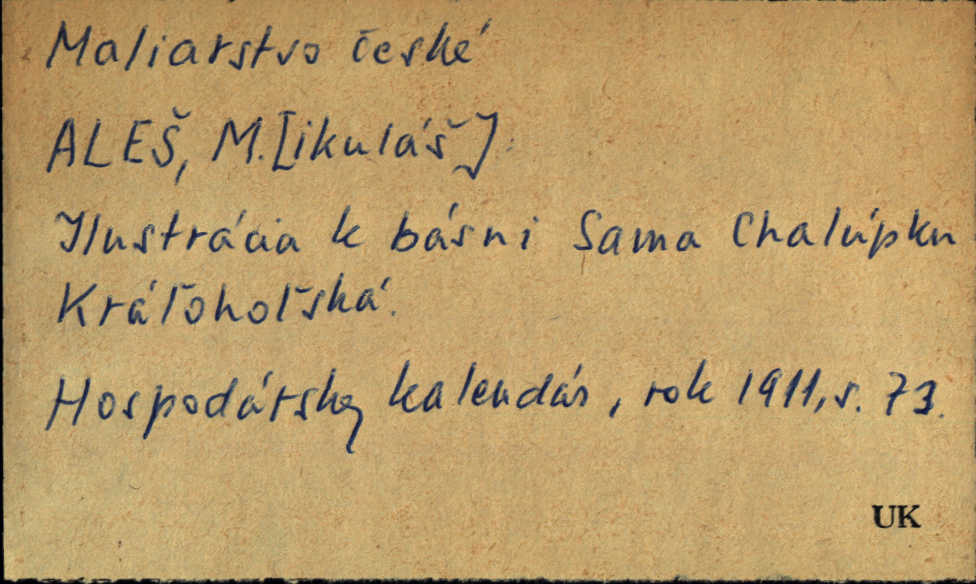 Maliarstvo české
ALEŠ, M.[ikuláš]
Ilustrácia k básni Sama Chalúpku
Kráľohoľská.
Hospodársky kalendár, rok 1911, s. 73.
UK